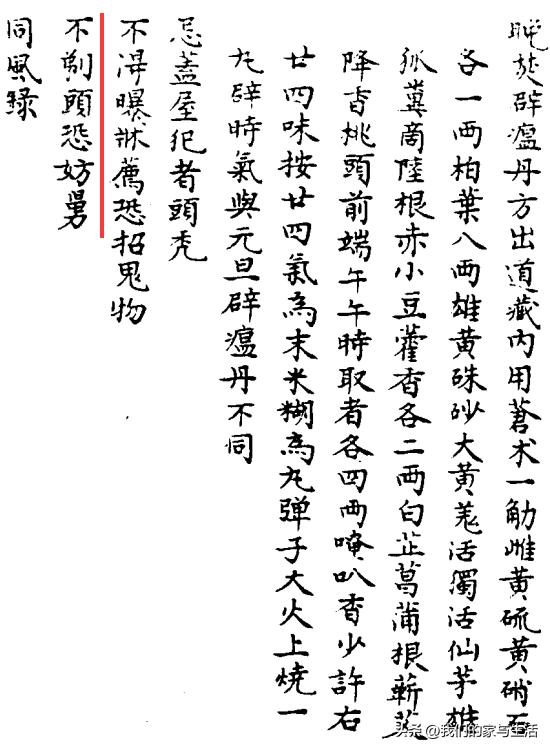 晚焚辟瘟丹方出道藏内用蒼术一觔雌黄硫黄硝石
各一两柏葉八两雄黄硃砂大黄羗活獨活仙茅雄
狐糞商陸根赤小豆藿香各二两白芷菖蒲根蘄艾
降香桃頭前端午午時取者各四两唵叭香少許右
廿四味按廿四氣為末米糊為丸弹子大火上燒一
丸辟時氣與元旦辟瘟丹不同
忌蓋屋犯者頭秃
不淂曝牀薦恐招鬼物
不剃頭恐妨舅
同風錄
头条 @我们的家与生活